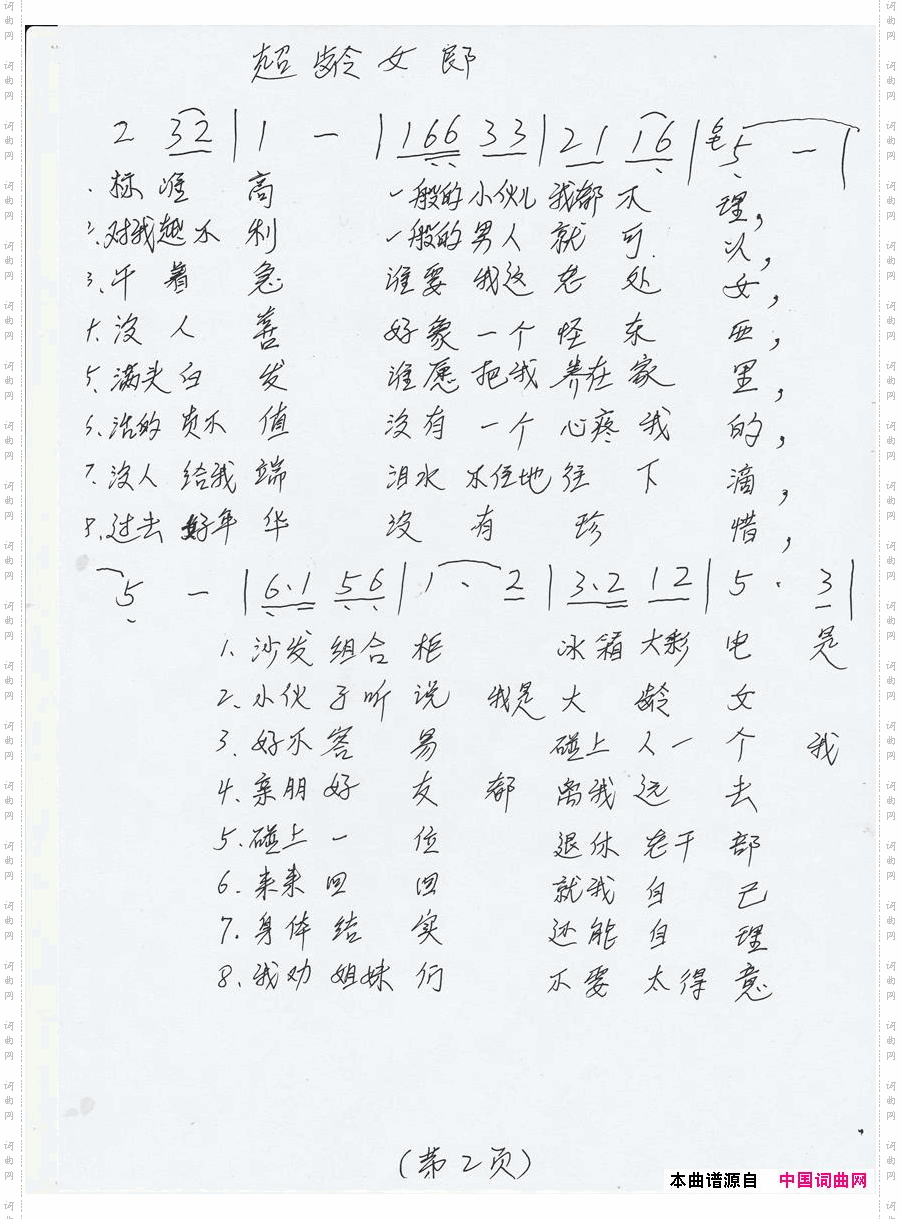 超龄女郎
2 32 | 1 — | 166 33 | 21 16 | 6 5 — |
1.标准高 一般的小伙儿我都不理,
2.对我越不利 一般的男人就可以,
3.干着急 谁要我这老处女,
4.没人善 好象一个怪东西,
5.满头白发 谁愿把我养在家里,
6.活的真不值 没有一个心疼我的,
7.没人给我端 泪水不住地往下滴,
8.过去好年华 没有珍惜,
5 — | 6·1 56 | 1· 2 | 3·2 12 | 5· 3 |
1.沙发组合柜 冰箱大彩电 是
2.小伙子听说 我是大龄女
3.好不容易 碰上人一个 我
4.亲朋好友 都离我远去
5.碰上一位 退休老干部
6.来来回回 就我自己
7.身体结实 还能自理
8.我劝姐妹们 不要太得意
(第2页)
本曲谱源自 中国词曲网
词曲网